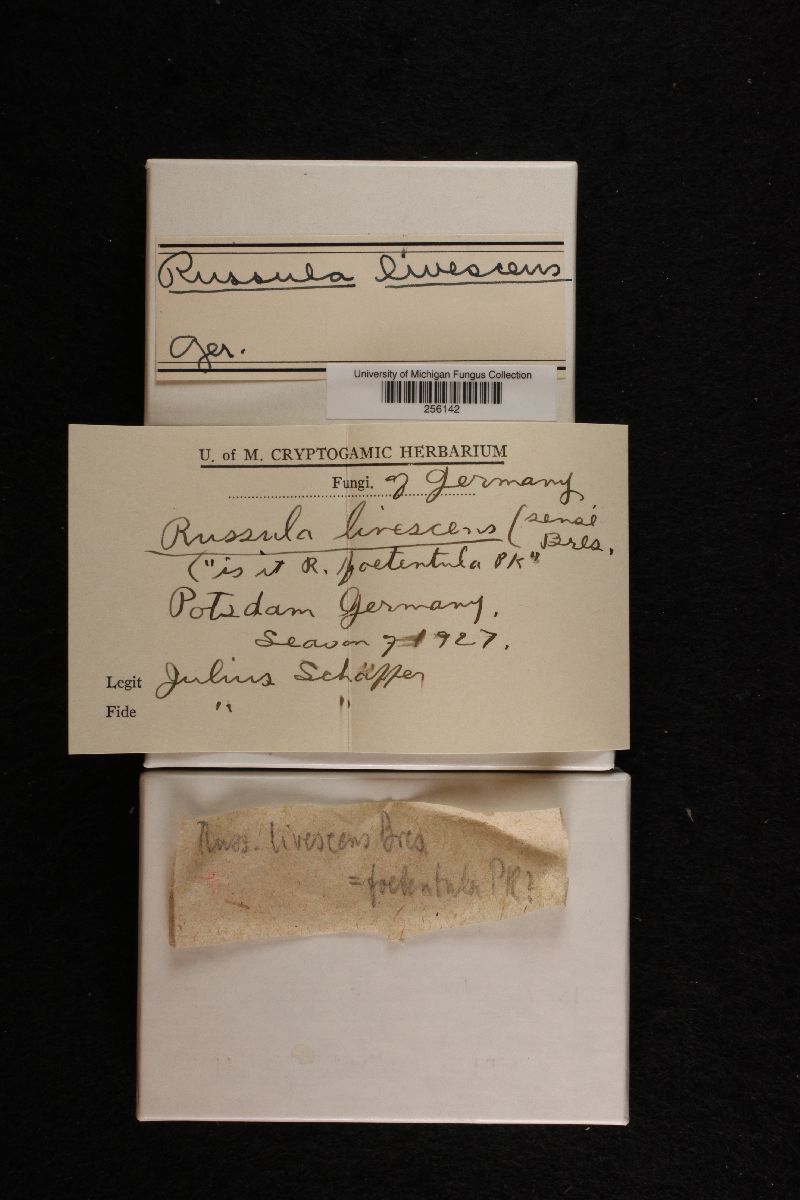 Russula livescens
Ger.
University of Michigan Fungus Collection
256142
U. of M. CRYPTOGAMIC HERBARIUM
Fungi. of Germany
Russula livescens (sensé
Bres.
("is it R. foetentula PK"
Potsdam Germany.
Season of 1927.
Legit Julius Schäffer
Fide " "
Russ. livescens Bres
= foetentula PK?